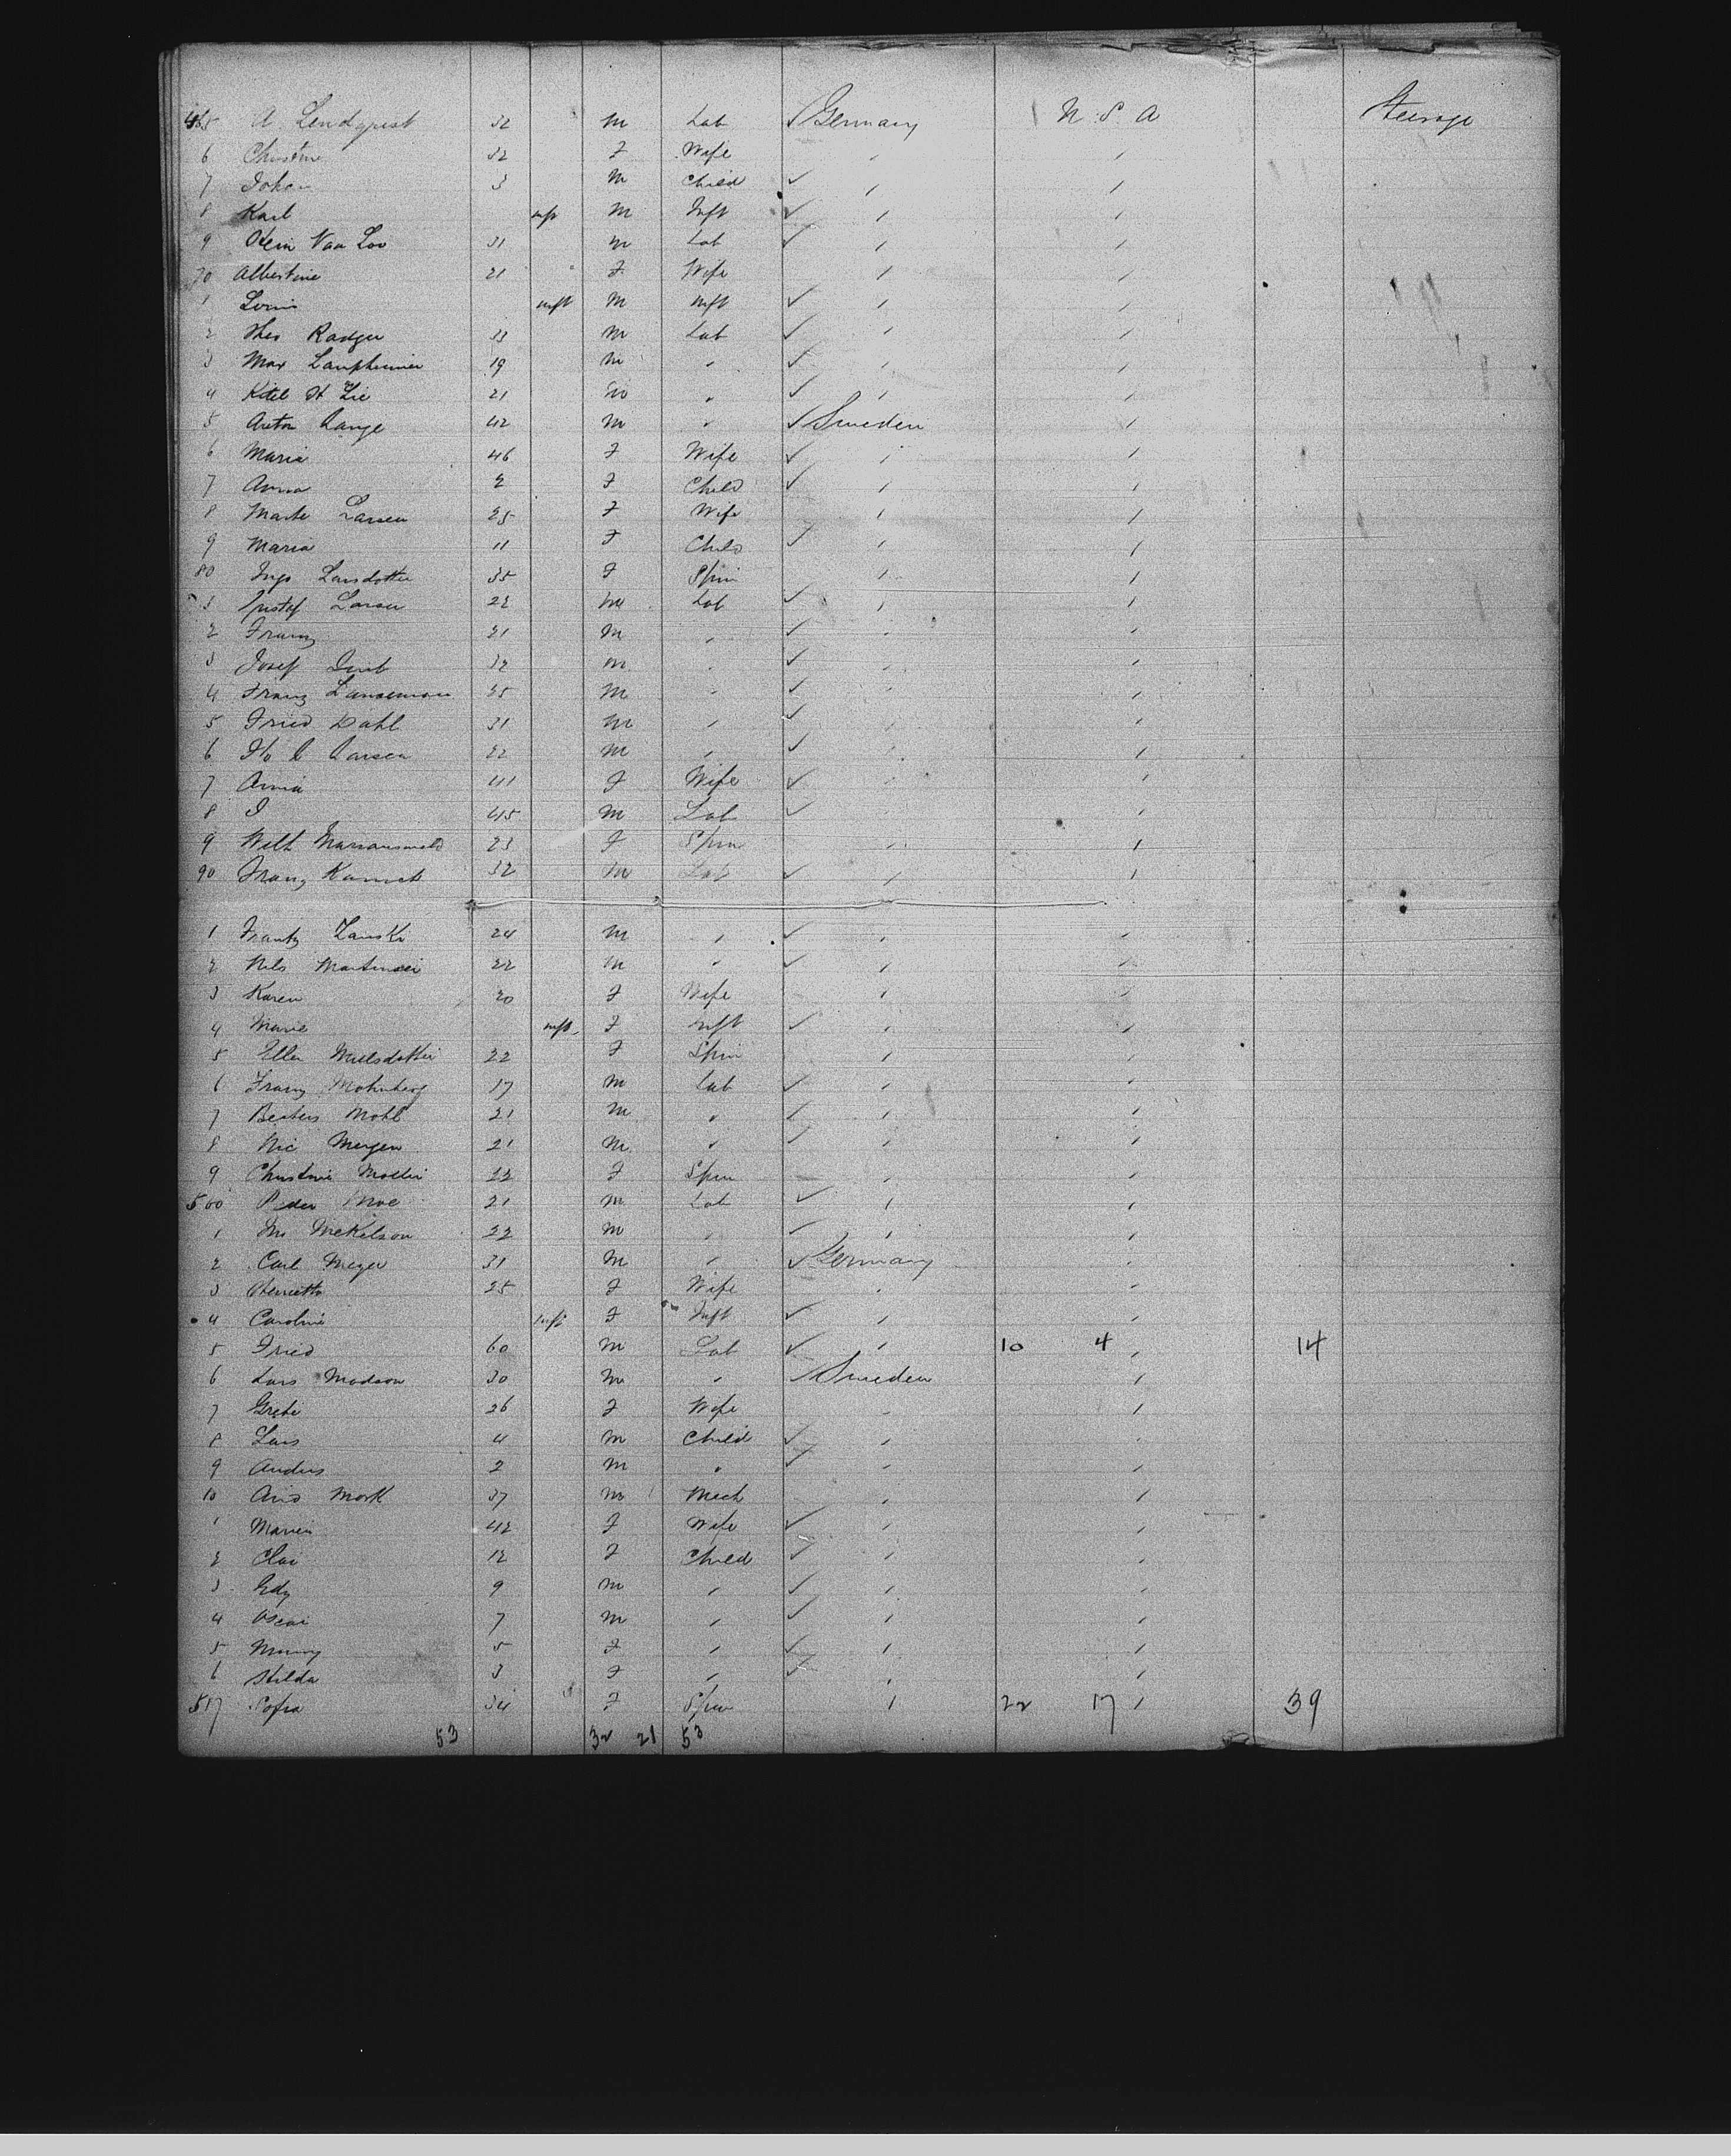 465 A Lendqvist 32 M Lab Germany U. S. A Steerage
6 Christine 32 F Wife
7 Johan 3 M Child
8 Karl inft M Inft
9 Hein Van Loo 31 M Lab
70 Albertine 21 F Wife
1 Louis inft M inft
2 Theo 33 M Lab
3 Max 19 M "
4 Kitel H Lie 21 M "
5 Anton Lange 42 M " Sweden
6 Maria 46 F Wife
7 Anna 2 F Child
8 Marte Larsen 25 F Wife
9 Maria 11 F Child
80 Inga Larsdotter 35 F Spin
1 Gustaf Larsen 22 M Lab
2 Franz 21 M "
3 Josef 32 M "
4 Franz 25 M "
5 Fried Dahl 31 M "
6 Larsen 22 M "
7 Anna 41 F Wife
8 I 45 M Lab
9 Wilh 23 F Spin
90 Franz 32 M Lab
1 Frantz Lanski 24 M "
2 Nils Martinsen 22 M "
3 Karen 20 F Wife
4 Marie inft F inft
5 Ellen 22 F Spin
6 Franz Mohnberg 17 M Lab
7 Mohl 21 M "
8 Nic Mergen 21 M "
9 Christine 22 F Spin
500 Peder Moe 21 M Lab
1 22 M "
2 Carl Meyer 31 M " Germany
3 Henrietta 25 F Wife
4 Caroline inft F Inft
5 Fried 60 M Lab 10 4 14
6 Lars Madson 30 M " Sweden
7 Grete 26 F Wife
8 Lars 4 M Child
9 Anders 2 M "
10 Mork 37 M Mech
1 Maria 42 F Wife
2 12 F Child
3 9 M "
4 Oscar 7 M "
5 5 F "
6 Hilda 3 F "
517 Sofia 34 F Spin 22 17 39
53 32 21 53